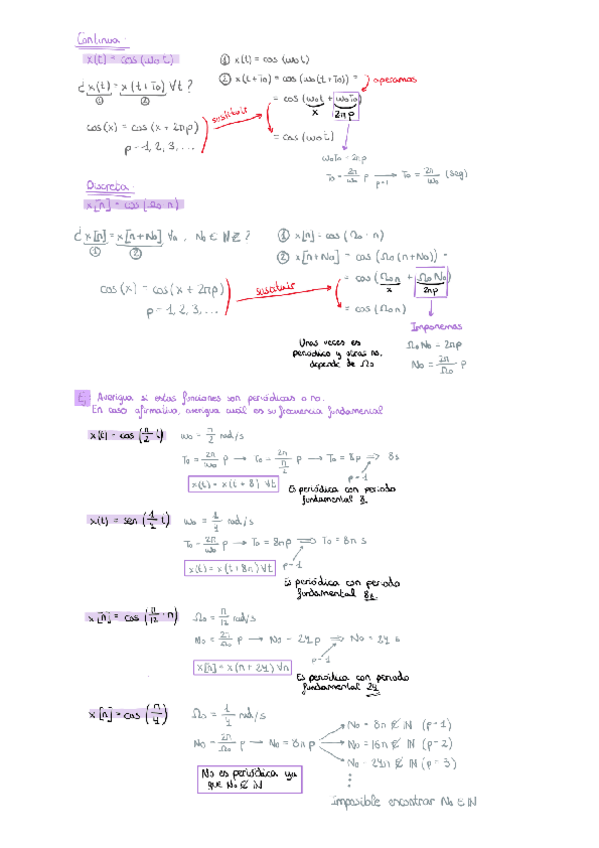 Continua:
x(t) = cos (ω₀t)
① x(t) = cos (ω₀t)
¿ x(t) = x(t+T₀) ∀t ?
① ②
② x(t+T₀) = cos (ω₀(t+T₀)) = operamos
= cos (ω₀t + ω₀T₀)
x 2πp
cos(x) = cos(x + 2πp)
p = 1, 2, 3, ...
sustituir
= cos (ω₀t)
ω₀T₀ = 2πp
T₀ = 2π/ω₀ p → p=1 T₀ = 2π/ω₀ (seg)
Discreta:
x[n] = cos (Ω₀ n)
¿ x[n] = x[n+N₀] ∀n , N₀ ∈ ?
① ②
① x[n] = cos (Ω₀ · n)
② x[n+N₀] = cos (Ω₀(n+N₀)) =
= cos (Ω₀n + Ω₀N₀)
x 2πp
cos(x) = cos(x + 2πp)
p = 1, 2, 3, ...
sustituir
= cos (Ω₀n)
Imponemos
Unas veces es
periódica y otras no,
depende de Ω₀
Ω₀N₀ = 2πp
N₀ = 2π/Ω₀ p
Averigua si estas funciones son periódicas o no.
En caso afirmativo, averigua cuál es su frecuencia fundamental
x(t) = cos (π/2 t) ω₀ = π/2 rad/s
T₀ = 2π/ω₀ p → T₀ = 2π/π/2 p → T₀ = 8p ⇒ 8s
p=1
x(t) = x(t + 8) ∀t
Es periódica con periodo
fundamental 8.
x(t) = sen (t) ω₀ = rad/s
T₀ = 2π/ω₀ p → T₀ = 8πp ⇒ T₀ = 8π s
p=1
x(t) = x(t+8π) ∀t
Es periódica con periodo
fundamental
x[n] = cos (π/12 · n) Ω₀ = π/12 rad/s
N₀ = 2π/Ω₀ p → N₀ = 24p ⇒ N₀ = 24
p=1
x[n] = x(n + 24) ∀n
Es periódica con periodo
fundamental 24
x[n] = cos (n/4) Ω₀ = 1/4 rad/s
N₀ = 2π/Ω₀ p → N₀ = 8πp
N₀ = 8π ∉ ℕ (p=1)
N₀ = 16π ∉ ℕ (p=2)
N₀ = 24π ∉ ℕ (p=3)
No es periódica ya
que N₀ ∉ ℕ
Imposible encontrar N₀ ∈ ℕ